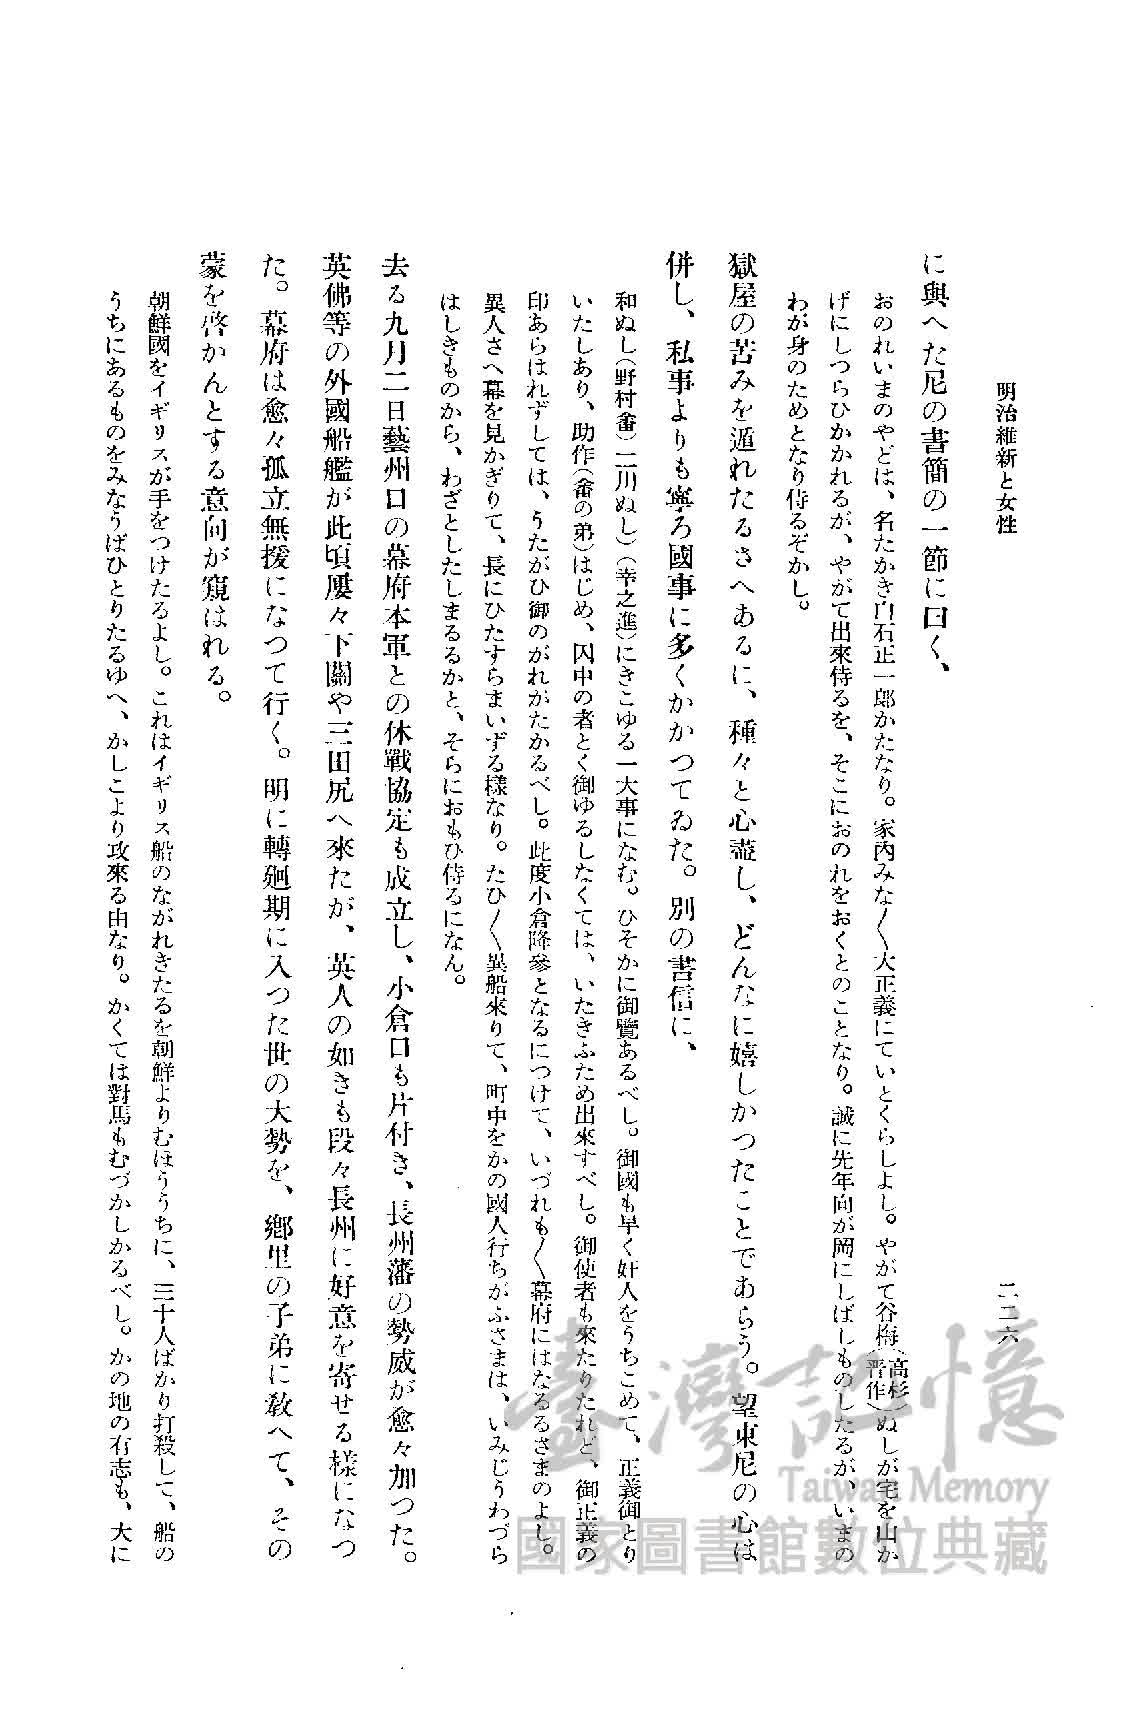 明治維新と女性
二二六
に與へた尼の書簡の一節に曰く、
おのれいまのやどは、名たかき白石正一郎かたなり。家內みな〳〵大正義にていとくらしよし。やがて谷梅(高杉晋作)ぬしが宅を山か
げにしつらひかかれるが、やがて出來侍るを、そこにおのれをおくとのことなり。誠に先年向が岡にしばしものしたるが、いまの
わが身のためとなり侍るぞかし。
獄屋の苦みを遁れたるさへあるに、種々と心盡し、どんなに嬉しかつたことであらう。望東尼の心は
併し、私事よりも寧ろ國事に多くかかつてゐた。別の書信に、
和ぬし(野村)二川ぬし)(幸之進)にきこゆる一大事になむ。ひそかに御覽あるべし。御國も早く奸人をうちこめて、正義御とり
いたしあり、助作(の弟)はじめ、囚中の者とく御ゆるしなくては、いたきふため出來すべし。御使者も來たりたれど、御正義の
印あらはれずしては、うたがひ御のがれがたかるべし。此度小倉降參となるにつけて、いづれも〳〵幕府にはなるるさまのよし。
異人さへ幕を見かぎりて、長にひたすらまいずる樣なり。たひ〳〵異船來りて、町中をかの國人行ちがふさまは、いみじうわづら
はしきものから、わざとしたしまるるかと、そらにおもひ侍るになん。
去る九月二日藝州口の幕府本軍との休戰協定も成立し、小倉口も片付き、長州藩の勢威が愈々加つた。
英佛等の外國船艦が此頃屢々下關や三田尻へ來たが、英人の如きも段々長州に好意を寄せる樣になつ
た。幕府は愈々孤立無援になつて行く。明に轉廻期に入つた世の大勢を、鄕里の子弟に敎へて、その
蒙を啓かんとする意向が窺はれる。
朝鮮國をイギリスが手をつけたるよし。これはイギリス船のながれきたるを朝鮮よりむほううちに、三十人ばかり打殺して、船の
うちにあるものをみなうばひとりたるゆへ、かしこより攻來る由なり。かくては對馬もむづかしかるべし。かの地の有志も、大に
臺灣記憶
Taiwan Memory
國家圖書館數位典藏